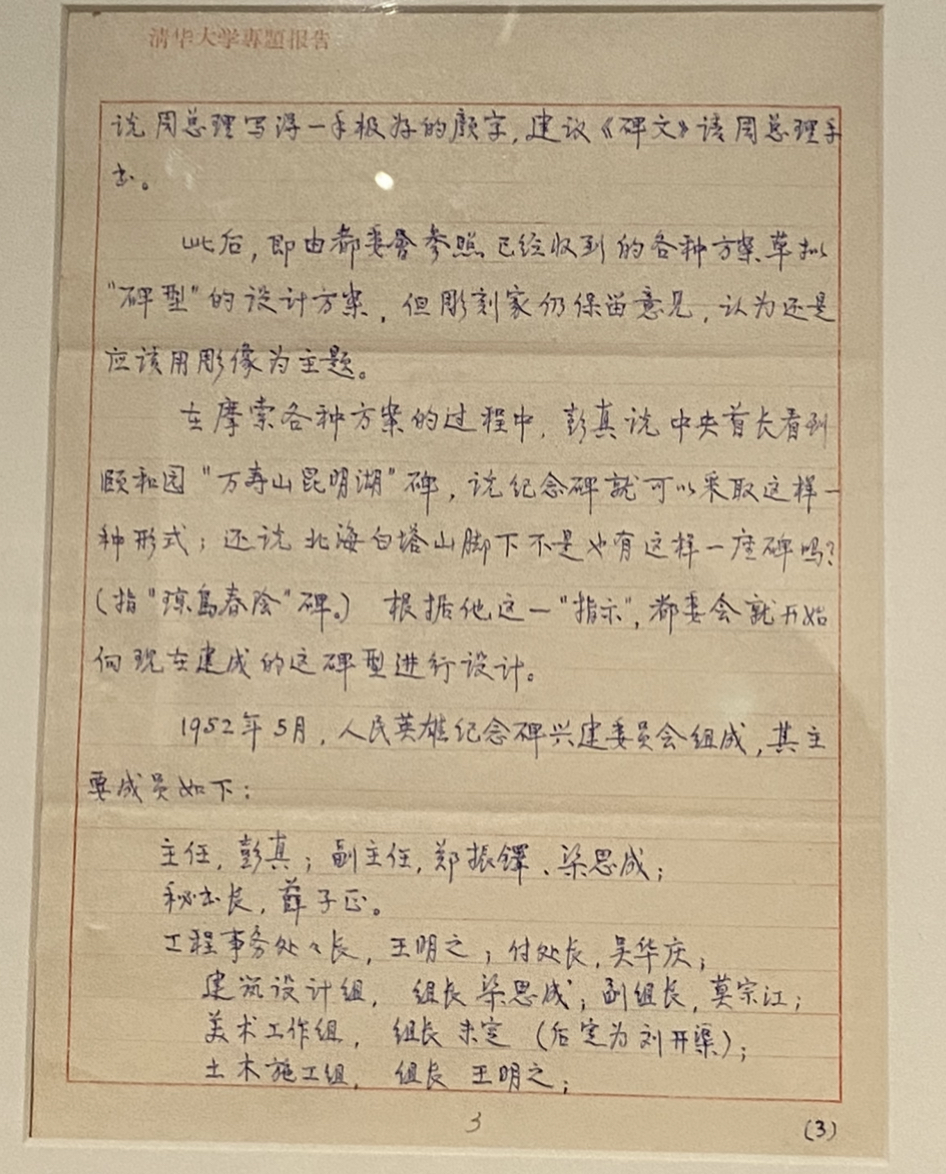 清华大学專題报告
说周总理写得一手极好的颜字，建议《碑文》请周总理手
书。
此后，即由都委會参照已经收到的各种方案草拟
“碑型”的设计方案，但彫刻家仍保留意见，认为还是
应该用彫像为主题。
在摩索各种方案的过程中，彭真说中央首长看到
颐和园“万寿山昆明湖”碑，说纪念碑就可以采取这样一
种形式；还说北海白塔山脚下不是也有这样一座碑吗？
（指“琼岛春陰”碑。）根据他这一“指示”，都委会就开始
向现在建成的这碑型进行设计。
1952年5月，人民英雄纪念碑兴建委员会组成，其主
要成员如下：
主任，彭真；副主任，郑振铎、梁思成；
秘书长，薛子正。
工程事务处々长，王明之；付处长，吴华庆；
建筑设计组，组长梁思成；副组长，莫宗江；
美术工作组，组长未定（后定为刘开渠）；
土木施工组，组长 王明之；
3
(3)